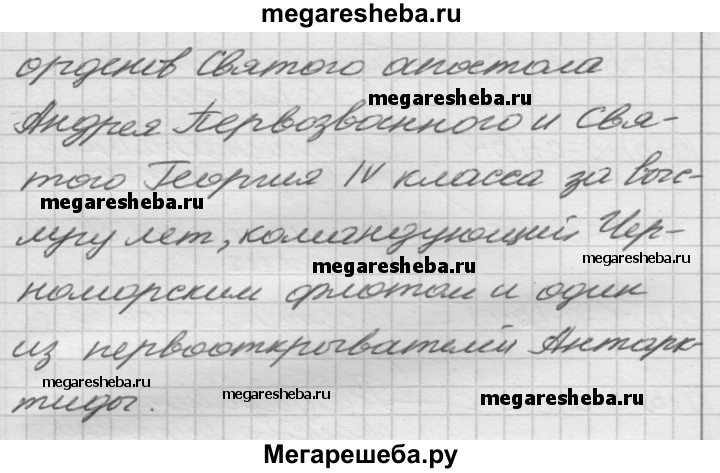 megaresheba.ru
орденов Святого апостола
megaresheba.ru
Андрея Первозванного и Свя-
того Георгия IV класса за выс-
megaresheba.ru
лугу лет, командующий Чер-
megaresheba.ru
megaresheba.ru
номорским флотом и один
из первооткрывателей Антарк-
megaresheba.ru
megaresheba.ru
megaresheba.ru
тиды.
Мегарешеба.ру